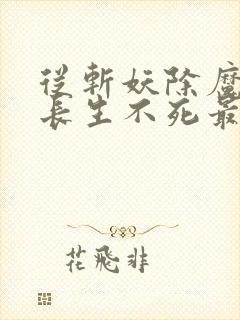 從斬妖除魔
長生不死最
花飛非